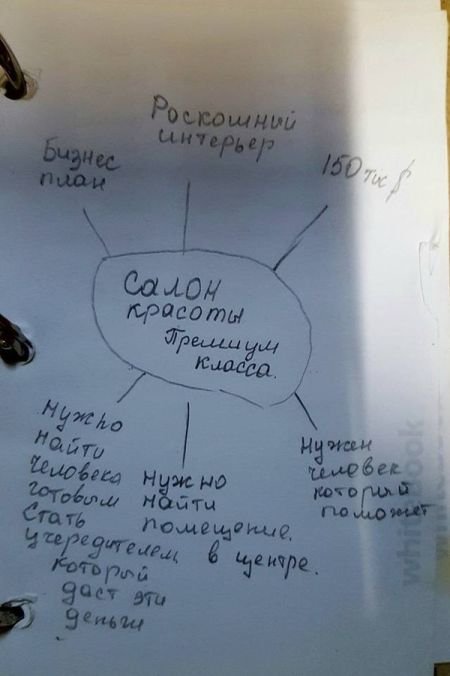 Роскошный
интерьер
Бизнес
план
150 тыс $
Салон
красоты
Премиум
класса.
Нужно
найти
человека
готовым
стать
учередителем,
который
даст эти
деньги
Нужно
найти
помещение.
в центре.
Нужен
человек
который
поможет
whitebook